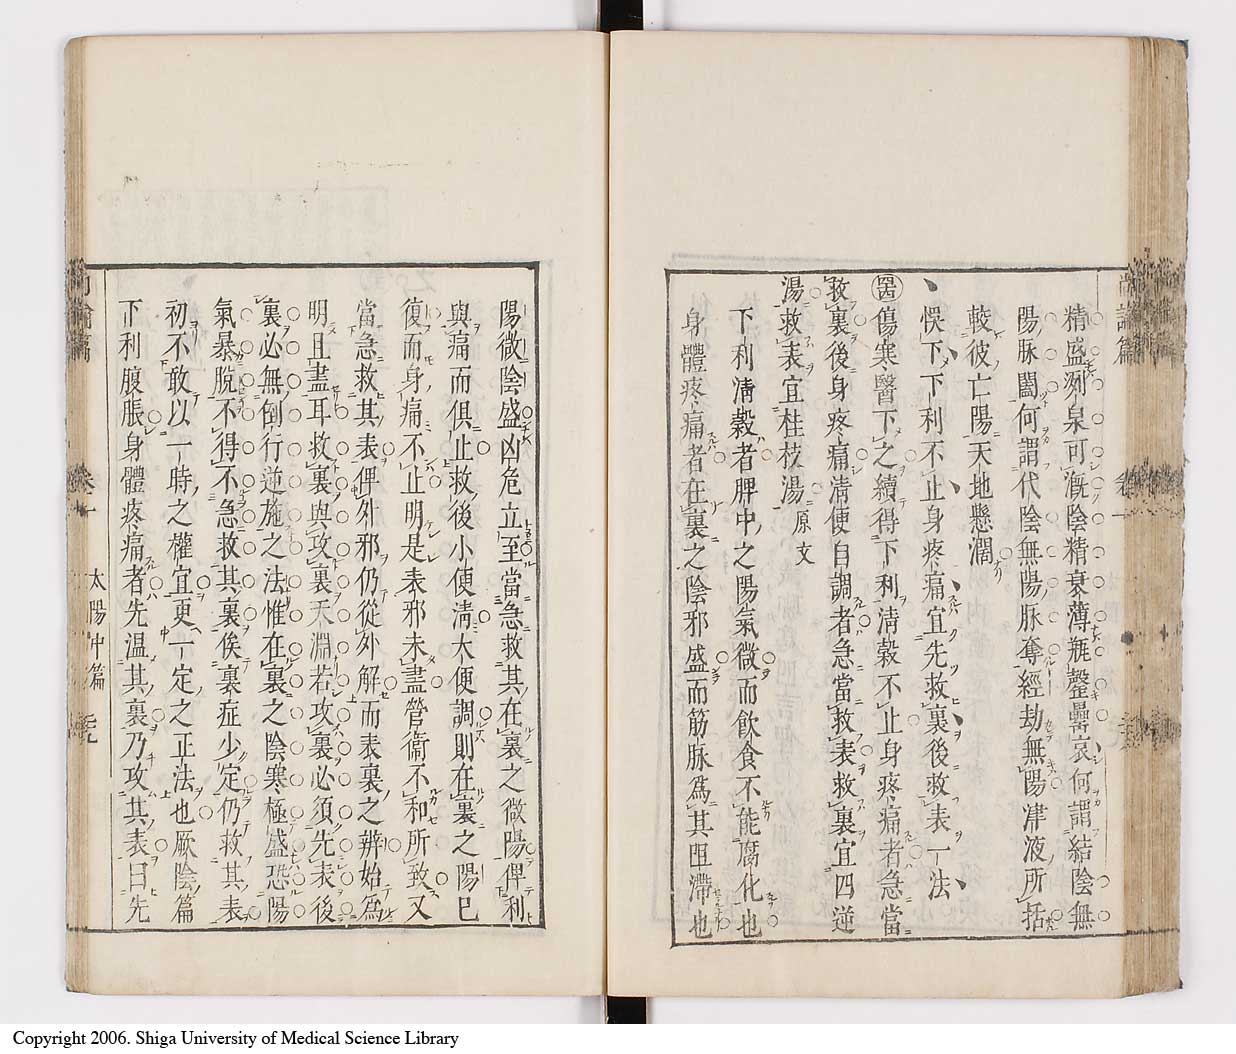 精盛冽泉可漑陰精衰薄瓶罄罍哀何謂結陰無
陽脉闔何謂代陰無陽脉奪經劫無陽津液所括
較彼亡陽天地懸濶
悞下下利不止身疼痛宜先救裏後救表一法
傷寒醫下之續得下利淸穀不止身疼痛者急當
救裏後身疼痛淸便自調者急當救表救裏宜四逆
湯救表宜桂枝湯原文
下利淸穀者脾中之陽氣微而飮食不能腐化也
身體疼痛者在裏之陰邪盛而筋脉爲其阻滯也
尚論篇 卷一
陽微陰盛凶危立至當急救其在裏之微陽俾利
與痛而俱止救後小便淸大便調則在裏之陽已
復而身痛不止明是表邪未盡營衞不和所致又
當急救其表俾外邪仍從外解而表裏之辨始爲
明且盡耳救裏與攻裏天淵若攻裏必須先表後
裏必無倒行逆施之法惟在裏之陰寒極盛恐陽
氣暴脫不得不急救其裏俟裏症少定仍救其表
初不敢以一時之權宜更一定之正法也厥陰篇
下利腹脹身體疼痛者先温其裏乃攻其表曰先
尚論篇 卷一 太陽中篇
Copyright 2006. Shiga University of Medical Science Library